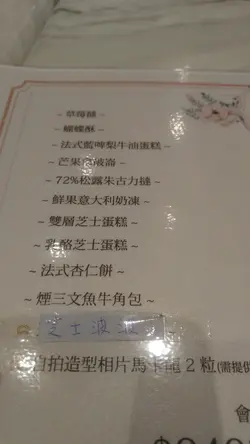 ~ 草莓撻 ~
~ 蝴蝶酥 ~
~ 法式藍啤梨牛油蛋糕 ~
~ 芒果拿破崙 ~
~ 72%松露朱古力撻 ~
~ 鮮果意大利奶凍 ~
~ 雙層芝士蛋糕 ~
~ 乳酪芝士蛋糕 ~
~ 法式杏仁餅 ~
~ 煙三文魚牛角包 ~
芝士波波
自拍造型相片馬卡龍 2 粒(需提供
會